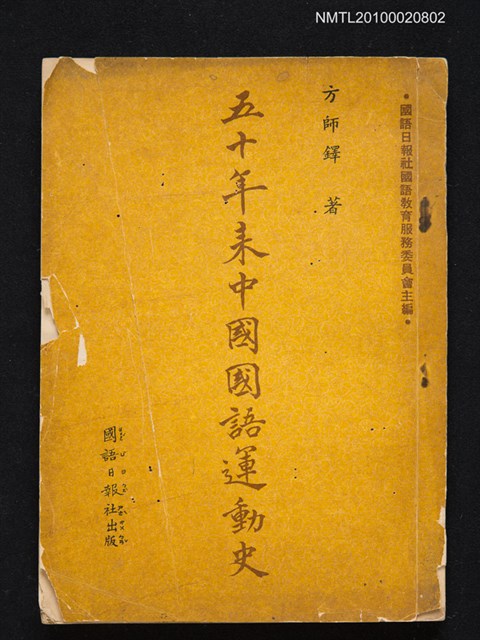 NMTL20100020802
•國語日報社國語教育服務委員會主編•
方師鐸 著
五十年來中國國語運動史
國語日報社出版